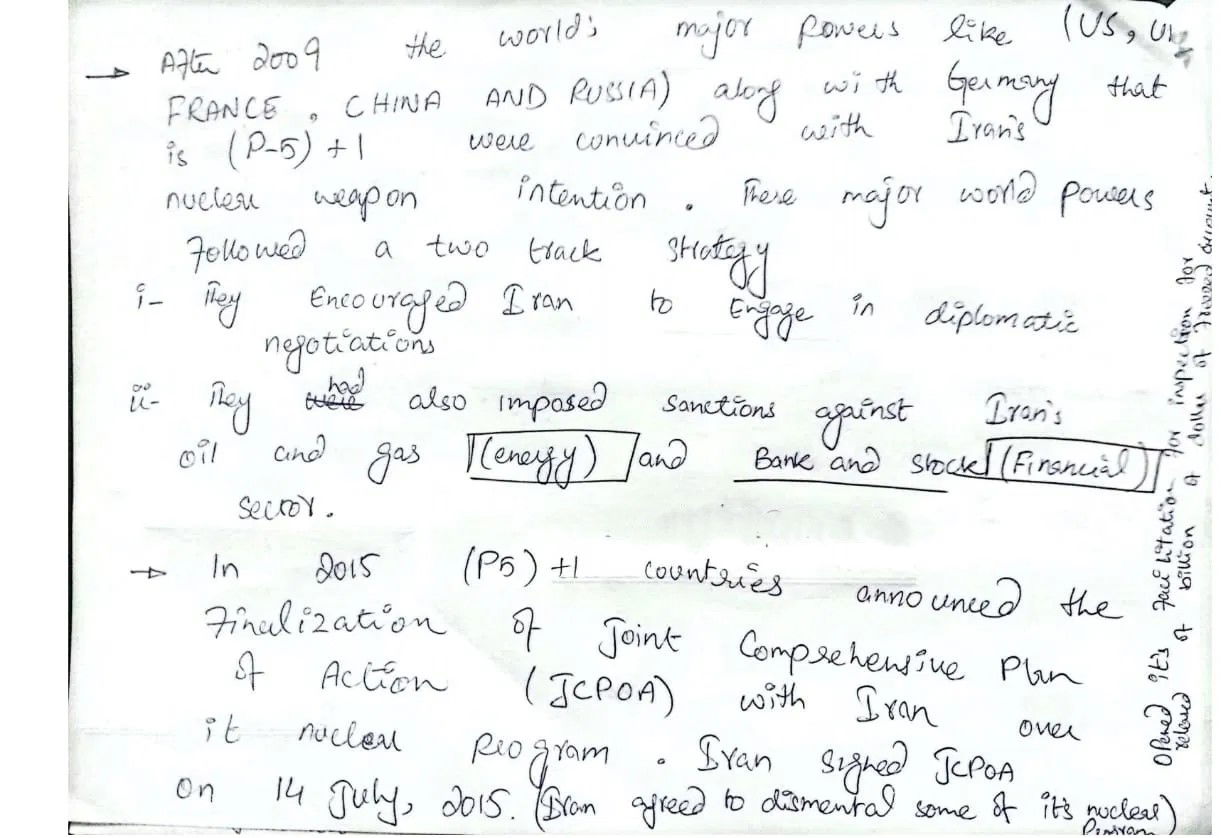 → After 2009 the world's major powers like (US, UK,
FRANCE, CHINA AND RUSSIA) along with Germany that
is (P-5) +1 were convinced with Iran's
nuclear weapon intention. These major world powers
followed a two track strategy
i- They Encouraged Iran to Engage in diplomatic
negotiations
ii- They were had also imposed sanctions against Iran's
oil and gas (energy) and Bank and stock (Financial)
sector.
→ In 2015 (P5) +1 countries announced the
Finalization of Joint Comprehensive Plan
of Action (JCPOA) with Iran over
it nuclear program. Iran signed JCPOA
on 14 July, 2015. (Iran agreed to dismental some of it's nuclear)
Program
opened it's facilitation for inspection for
release of billion of dollar of freezed account.